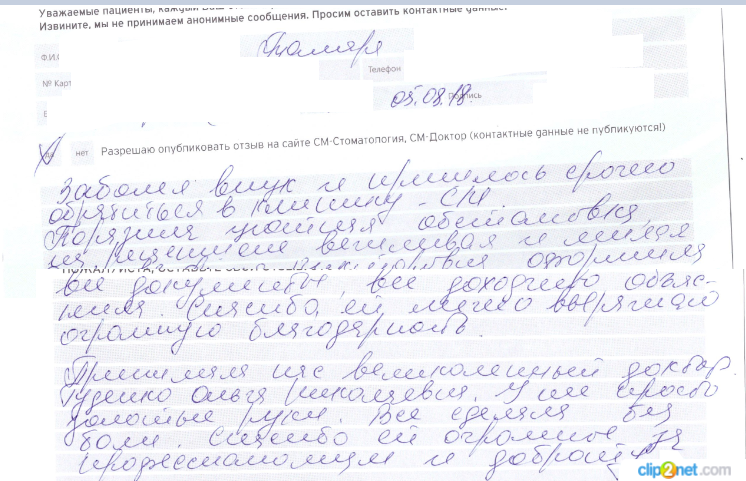 Уважаемые пациенты, каждый Ваш
Извините, мы не принимаем анонимные сообщения. Просим оставить контактные данные.
Ф.И.О
Тамара
Телефон
№ Карт
05.08.18.
нет Разрешаю опубликовать отзыв на сайте СМ-Стоматология, СМ-Доктор (контактные данные не публикуются!)
Заболел внук и пришлось срочно
обратиться в клинику - СМ.
Поразила уютная обстановка,
на ресепшене вежливая и милая
оформила
все документы, все доходчиво объяс-
нила. Спасибо ей лично выражаю
огромную благодарность.
Принимала нас великолепный доктор
Гуденко Ольга Николаевна. У нее просто
золотые руки. Все сделала без
боли. Спасибо ей огромное за
профессионализм и доброту
clip2net.com